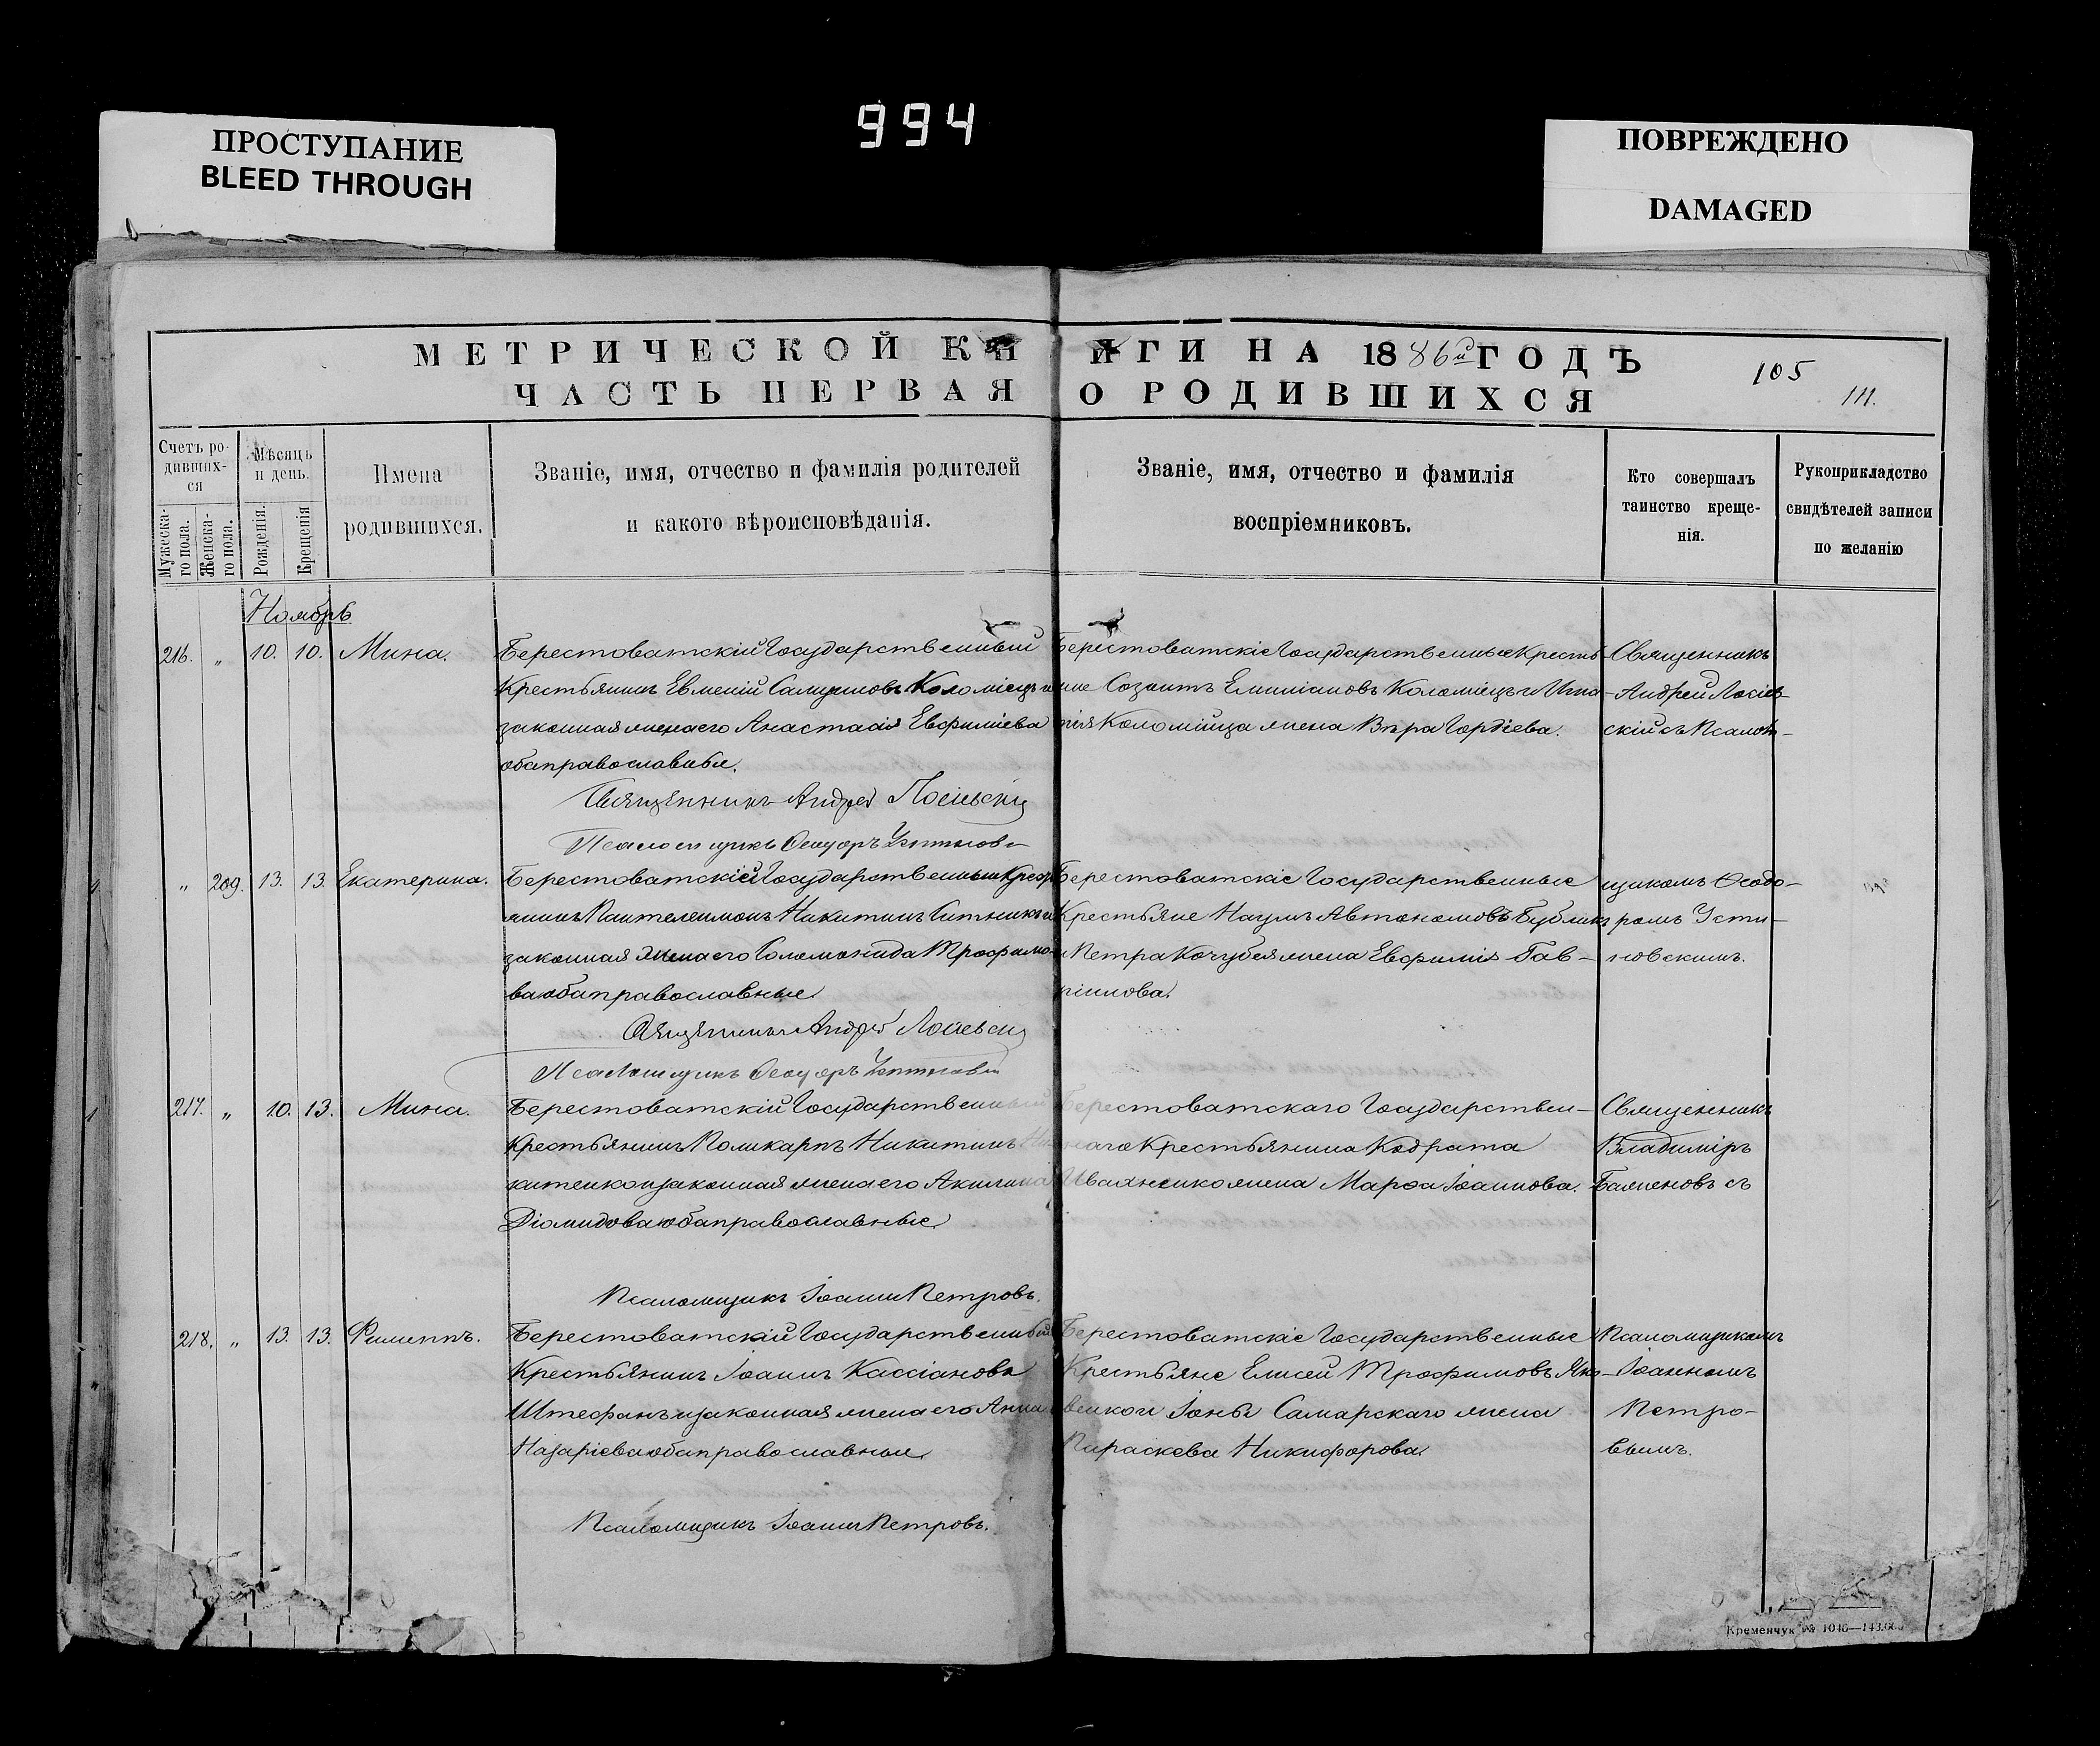 994
ПРОСТУПАНИЕ
BLEED THROUGH
ПОВРЕЖДЕНО
DAMAGED
МЕТРИЧЕСКОЙ КНИГИ НА 1886й ГОДЪ
105
ЧАСТЬ ПЕРВАЯ О РОДИВШИХСЯ
111.
Счетъ родившихся
Мужескаго пола.
Женскаго пола.
Мѣсяцъ и день.
Рожденія.
Крещенія
Имена
родившихся.
Званіе, имя, отчество и фамилія родителей
и какого вѣроисповѣданія.
Званіе, имя, отчество и фамилія
воспріемниковъ.
Кто совершалъ
таинство креще-
нія.
Рукоприкладство
свидѣтелей записи
по желанію
Ноябрь
216. „ 10. 10. Мина.
Берестоватскій Государственный
Крестьянинъ Евменій Коломіецъ и
законная жена его Анастасія Евфиміева
оба православные.
Священникъ Андрей Лосіевскій
Псаломщикъ Ѳеодоръ
Берестоватскіе Государственные Кресть-
яне Созонтъ Емиліановъ Коломіецъ и Игна-
тія Коломійца жена Вѣра Гордіева.
Священникъ
Андрей Лосіев-
скій съ Псалом-
„ 209. 13. 13. Екатерина.
Берестоватскій Государственный Кресть-
янинъ Пантелеимонъ Никитинъ Ситникъ и
законная жена его Соломонида Трофимо-
ва оба православные.
Священникъ Андрей Лосіевскій
Псаломщикъ Ѳеодоръ
Берестоватскіе Государственные
Крестьяне Наумъ Автономовъ Бубликъ
и Петра Кочубея жена Евфимія Гав-
ріилова.
щикомъ Ѳеодо-
ромъ Усти-
новскимъ.
217. „ 10. 13. Мина.
Берестоватскій Государственный
Крестьянинъ Поликарпъ Никитинъ Ни-
китенко и законная жена его Акилина
Діомидова оба православные.
Псаломщикъ Іоаннъ Петровъ.
Берестоватскаго Государствен-
наго Крестьянина Кодрата
Иваненко жена Марѳа Іоаннова.
Священникъ
Владиміръ
Баженовъ съ
218. „ 13. 13. Филиппъ.
Берестоватскій Государственный
Крестьянинъ Іоаннъ Кассіановъ
Штефанъ и законная жена его Анна
Назаріева оба православные.
Псаломщикъ Іоаннъ Петровъ.
Берестоватскіе Государственные
Крестьяне Елисей Трофимовъ Яко-
венко и Іоны Самарскаго жена
Параскева Никифорова.
Псаломщикомъ
Іоанномъ
Петро-
вымъ.
Кременчук № 1046—143.